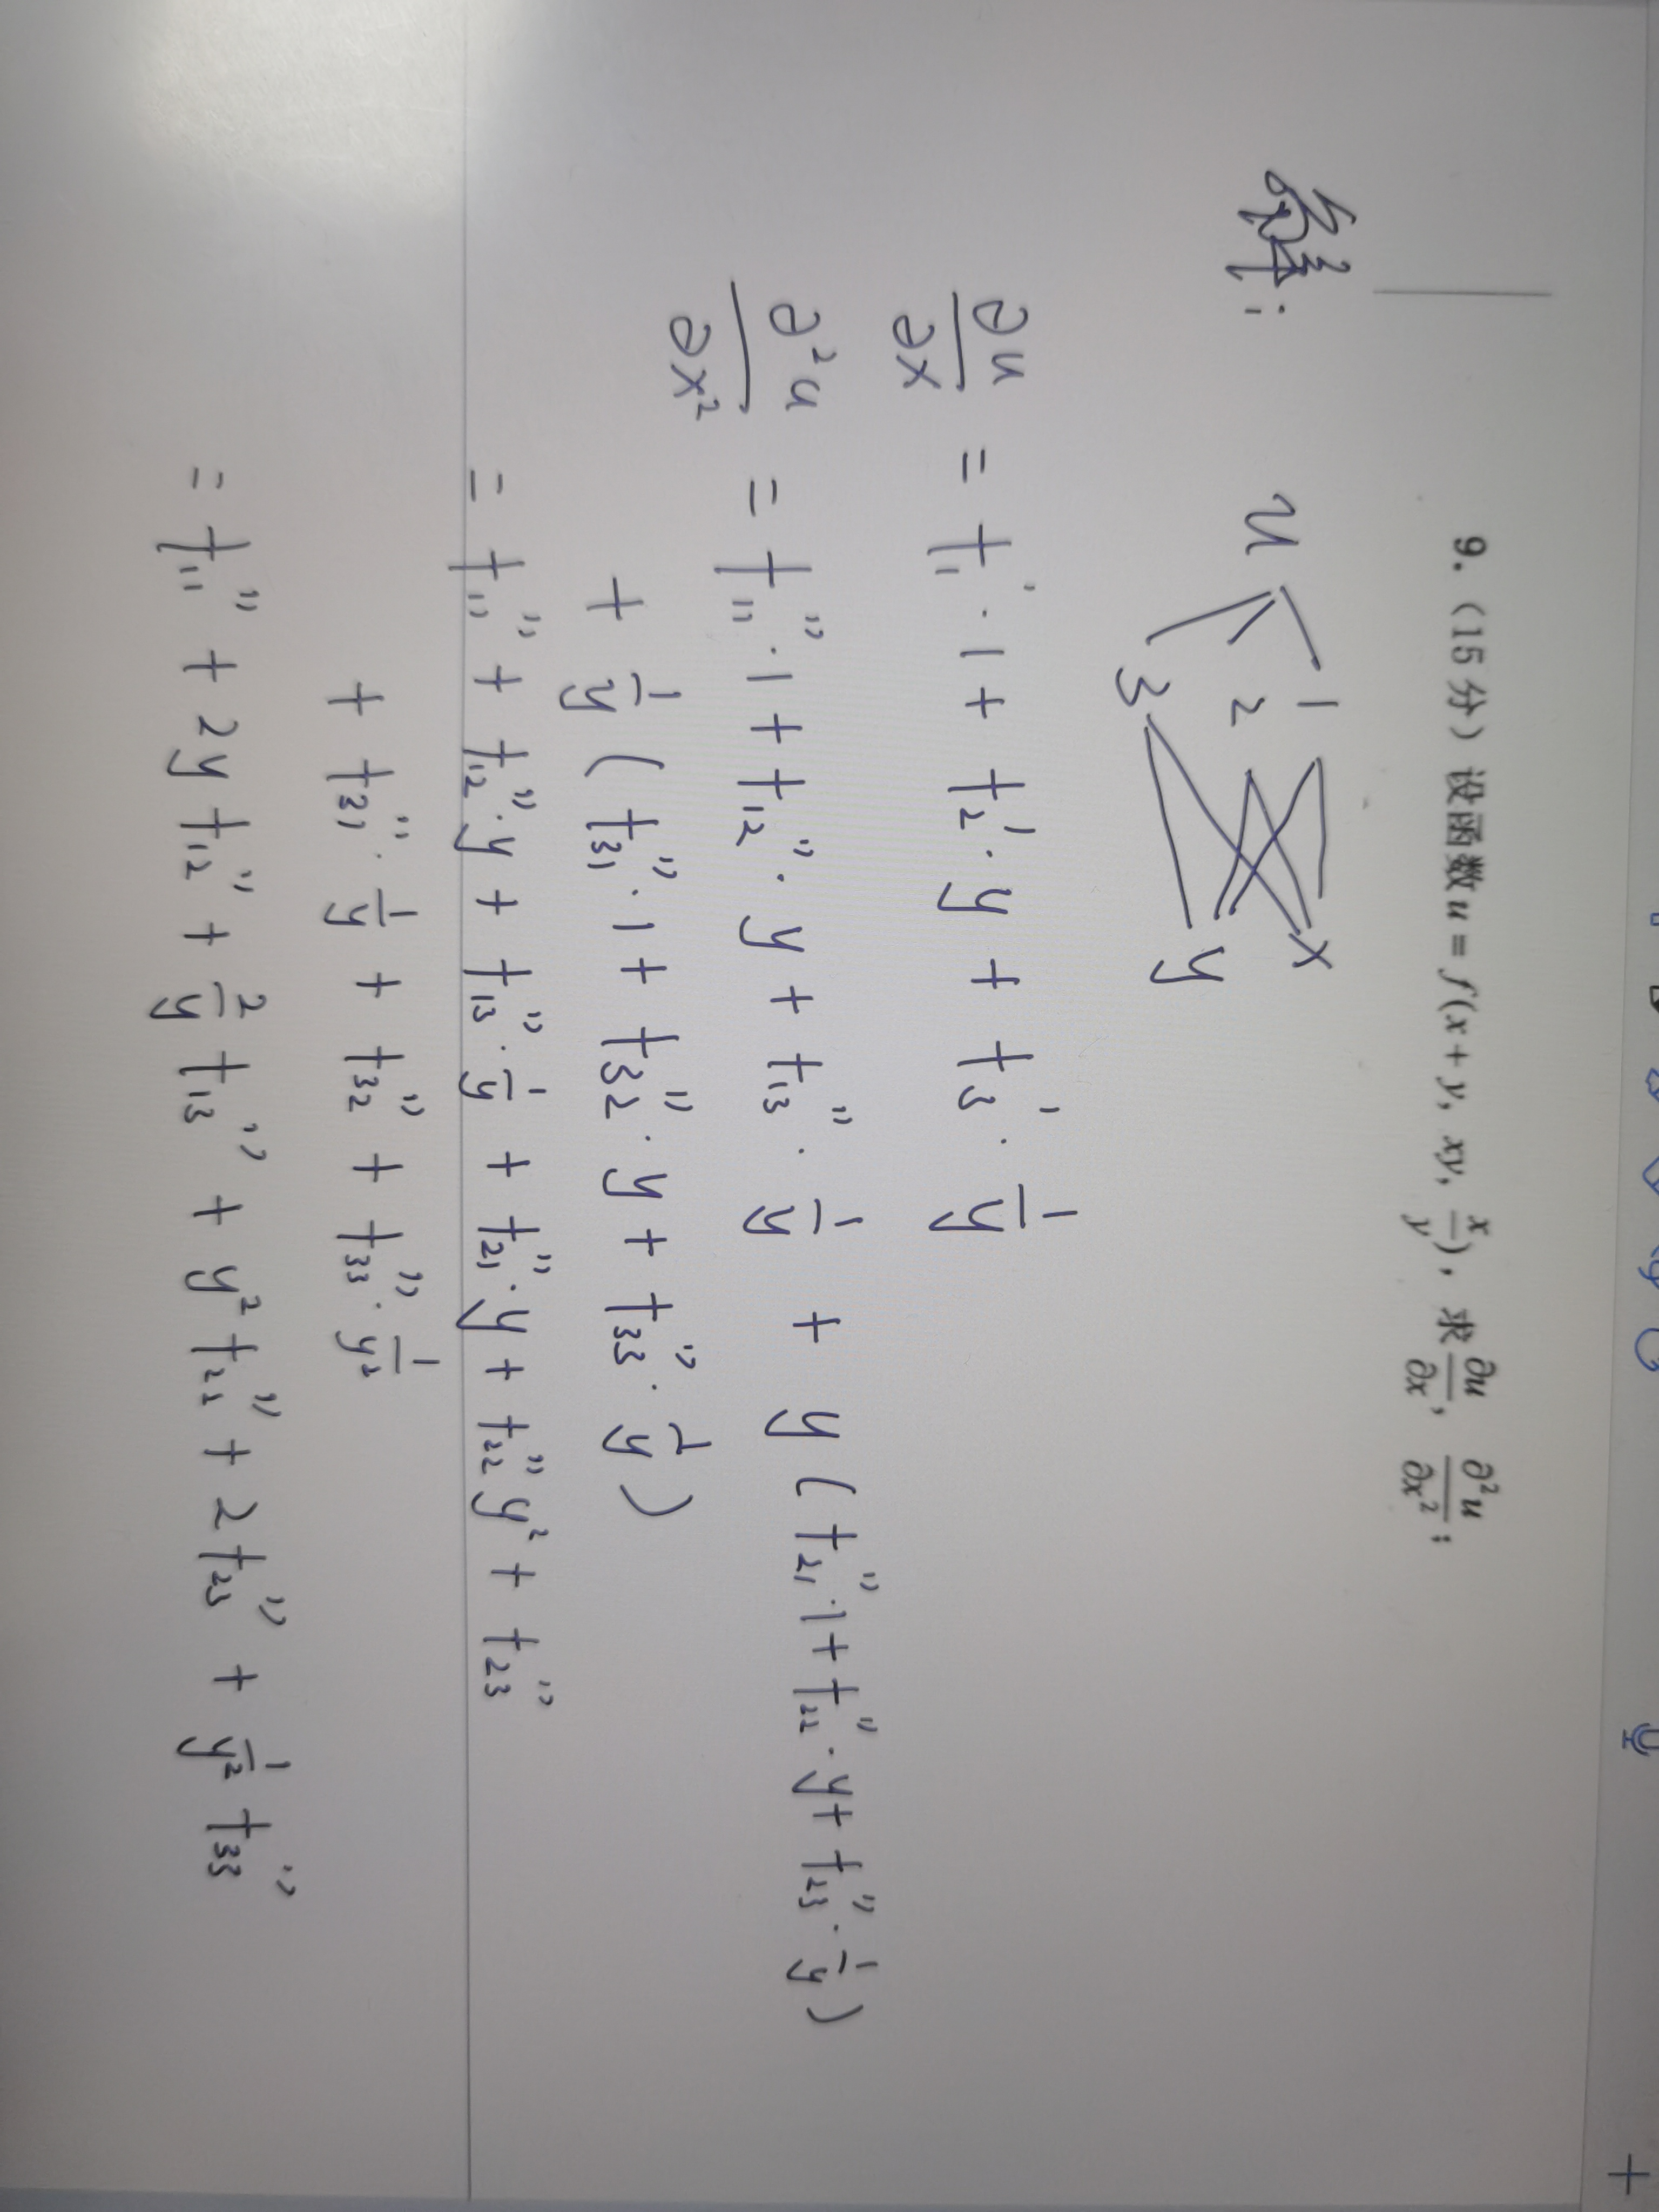 9.（15 分）设函数u = f(x + y, xy, x/y)，求∂u/∂x，∂²u/∂x²；
解：
u 1 2 3 x y
∂u/∂x = f₁'·1 + f₂'·y + f₃'·1/y
∂²u/∂x² = f₁₁''·1 + f₁₂''·y + f₁₃''·1/y + y(f₂₁''·1 + f₂₂''·y + f₂₃''·1/y)
+ 1/y(f₃₁''·1 + f₃₂''·y + f₃₃''·1/y)
= f₁₁'' + f₁₂''·y + f₁₃''·1/y + f₂₁''·y + f₂₂''y² + f₂₃''
+ f₃₁''·1/y + f₃₂'' + f₃₃''·1/y²
= f₁₁'' + 2yf₁₂'' + 2/y f₁₃'' + y²f₂₂'' + 2f₂₃'' + 1/y² f₃₃''